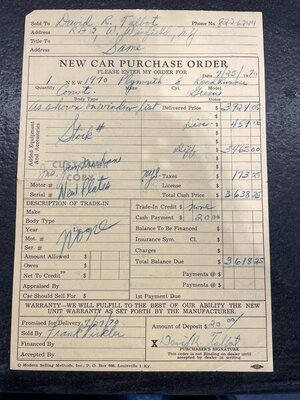 Sold To David R. Talbot Phone No. 822-6244
Address R#2 W. Winfield, NY
Title To Same
Address
NEW CAR PURCHASE ORDER
PLEASE ENTER MY ORDER FOR
Date 7/25/ 70
1 NEW 1970 Plymouth 8 Road Runner
Quantity Year Make Cyl. Model
Convt. Green
Body Type Color
As shown on window list Delivered Price 3924 05
Added Equipment and Accessories
Stock# Disc. 459 05
Diff 3465 00
CUSTOMER
COPY
Ins. NYS Taxes 173 25
Motor # License
Serial # New Plates Total Cash Price 3,638 25
DESCRIPTION OF TRADE-IN Trade-In Credit $ None
Make Cash Payment $ 20.00
Body Type Balance To Be Financed
Year None Insurance Sym. Cl.
Mot. # Charges
Ser. #
Amount Allowed $ Total Balance Due 3618 25
Owes Payments @ $
Net To Credit $ Payments @ $
Appraised By Payments @ $
Car Should Sell For $ 1st Payment Due
WARRANTY—WE WILL FULFILL TO THE BEST OF OUR ABILITY THE NEW
UNIT WARRANTY AS SET FORTH BY THE MANUFACTURER.
Promised for Delivery 7/27/70 Amount of Deposit $ 20 00
Sold by Frank
Financed By X David R. Talbot
Accepted By PURCHASER'S SIGNATURE
This order is not Binding on dealer until
accepted by dealer in writing
© Modern Selling Methods, Inc., P. O. Box 666, Louisville 1, Ky.